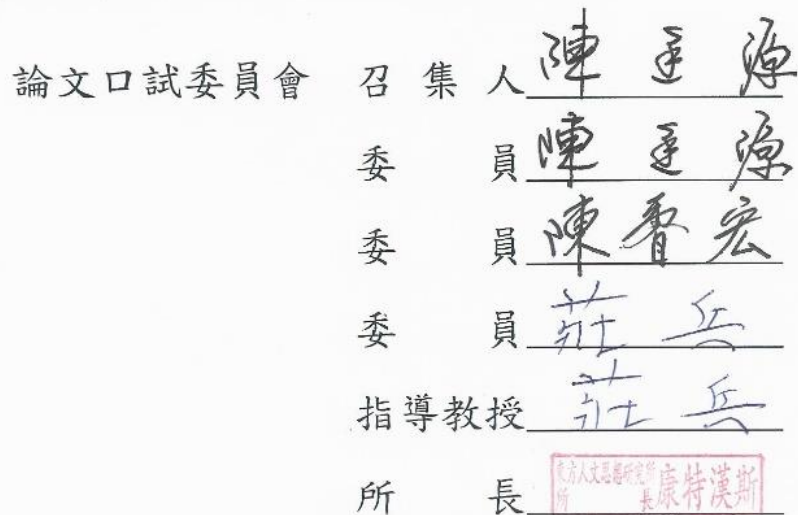 論文口試委員會 召集人 陳 源
委 員 陳 源
委 員 陳晉宏
委 員 莊兵
指導教授 莊兵
所 長 東方人文思想研究所 所長 康特漢斯